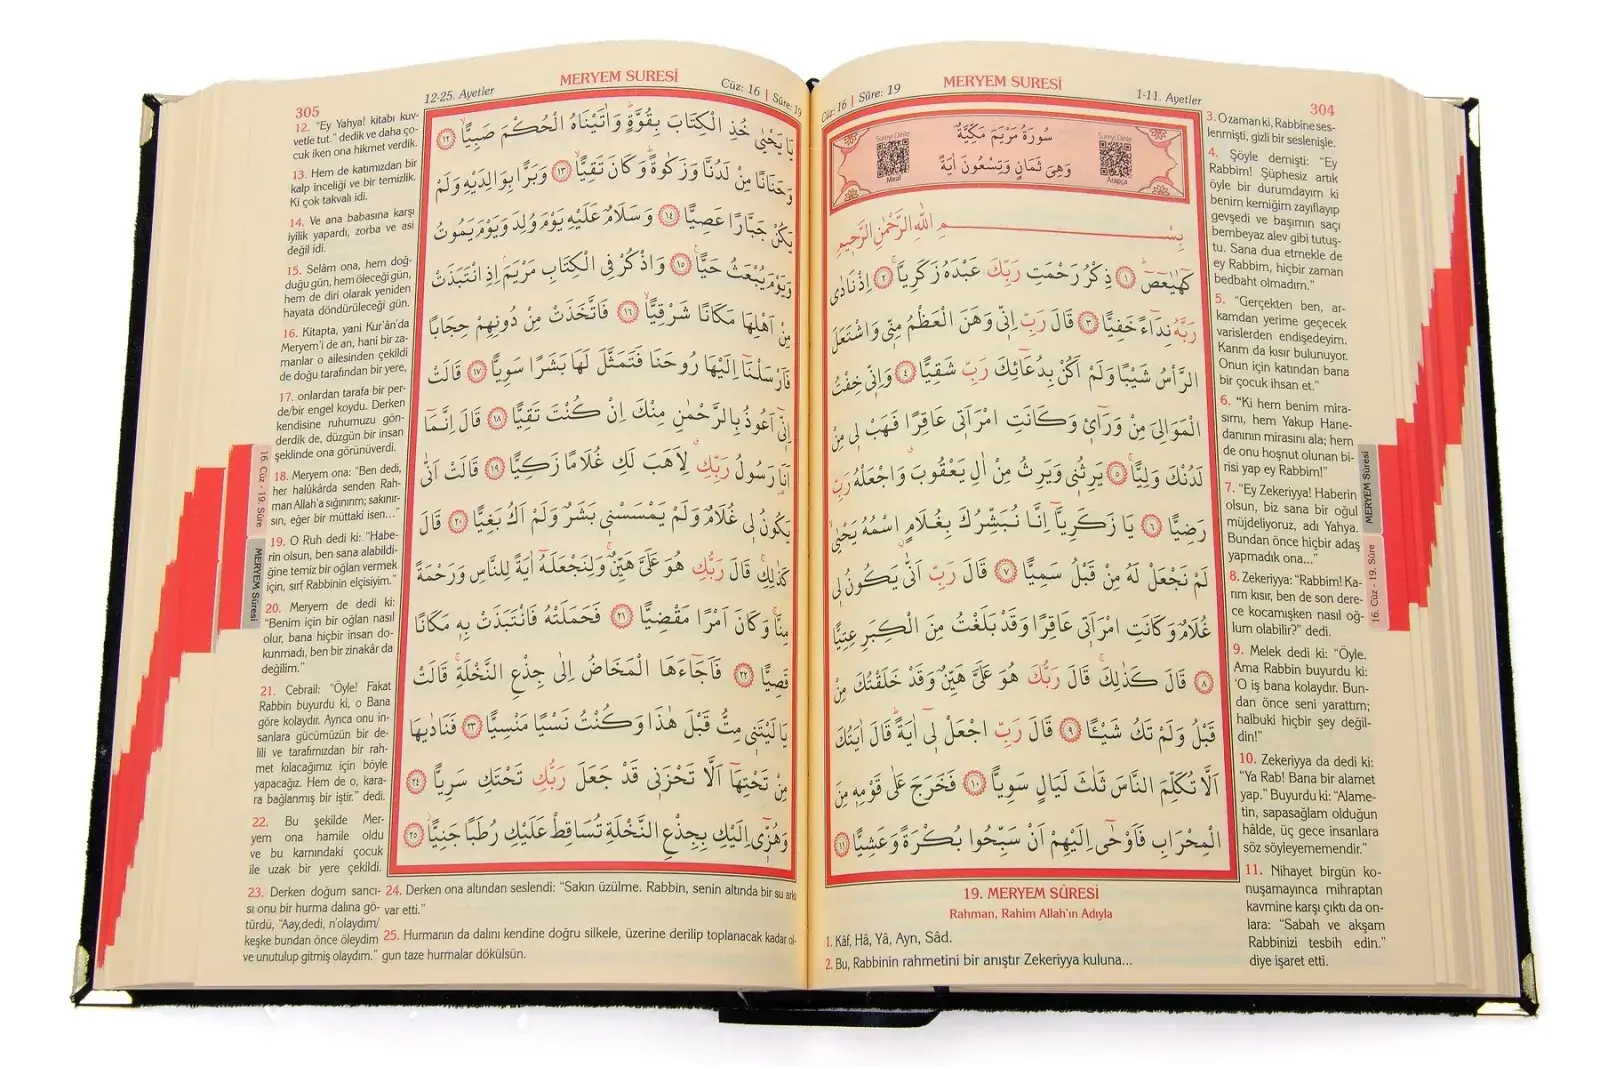 304
MERYEM SURESİ
Cüz: 16 | Sûre: 19
1-11. Ayetler
سُورَةُ مَرْيَمَ مَكِّيَّةٌ
وَهِيَ ثَمَانٍ وَتِسْعُونَ اٰيَةً
Sureyi Dinle
Meal
Sureyi Dinle
Arapça
بِسْمِ اللّٰهِ الرَّحْمٰنِ الرَّح۪يمِ
كٓهٰيٰعٓصٓ ﴿١﴾ ذِكْرُ رَحْمَتِ رَبِّكَ عَبْدَهُ زَكَرِيَّا ﴿٢﴾ اِذْ نَادٰى
رَبَّهُ نِدَٓاءً خَفِيًّا ﴿٣﴾ قَالَ رَبِّ اِنّ۪ي وَهَنَ الْعَظْمُ مِنّ۪ي وَاشْتَعَلَ
الرَّأْسُ شَيْبًا وَلَمْ اَكُنْ بِدُعَٓائِكَ رَبِّ شَقِيًّا ﴿٤﴾ وَاِنّ۪ي خِفْتُ
الْمَوَالِيَ مِنْ وَرَٓاء۪ي وَكَانَتِ امْرَاَت۪ي عَاقِرًا فَهَبْ ل۪ي مِنْ
لَدُنْكَ وَلِيًّا ﴿٥﴾ يَرِثُن۪ي وَيَرِثُ مِنْ اٰلِ يَعْقُوبَ وَاجْعَلْهُ رَبِّ
رَضِيًّا ﴿٦﴾ يَا زَكَرِيَّٓا اِنَّا نُبَشِّرُكَ بِغُلَامٍ اسْمُهُ يَحْيٰى
لَمْ نَجْعَلْ لَهُ مِنْ قَبْلُ سَمِيًّا ﴿٧﴾ قَالَ رَبِّ اَنّٰى يَكُونُ ل۪ي
غُلَامٌ وَكَانَتِ امْرَاَت۪ي عَاقِرًا وَقَدْ بَلَغْتُ مِنَ الْكِبَرِ عِتِيًّا
﴿٨﴾ قَالَ كَذٰلِكَ قَالَ رَبُّكَ هُوَ عَلَيَّ هَيِّنٌ وَقَدْ خَلَقْتُكَ مِنْ
قَبْلُ وَلَمْ تَكُ شَيْـًٔا ﴿٩﴾ قَالَ رَبِّ اجْعَلْ ل۪ٓي اٰيَةً قَالَ اٰيَتُكَ
اَلَّا تُكَلِّمَ النَّاسَ ثَلٰثَ لَيَالٍ سَوِيًّا ﴿١٠﴾ فَخَرَجَ عَلٰى قَوْمِه۪ مِنَ
الْمِحْرَابِ فَاَوْحٰٓى اِلَيْهِمْ اَنْ سَبِّحُوا بُكْرَةً وَعَشِيًّا ﴿١١﴾
19. MERYEM SÛRESİ
Rahman, Rahim Allah'ın Adıyla
1. Kâf, Hâ, Yâ, Ayn, Sâd.
2. Bu, Rabbinin rahmetini bir anıştır Zekeriyya kuluna...
3. O zaman ki, Rabbine ses-
lenmişti, gizli bir seslenişle.
4. Şöyle demişti: "Ey
Rabbim! Şüphesiz artık
öyle bir durumdayım ki
benim kemiğim zayıflayıp
gevşedi ve başımın saçı
bembeyaz alev gibi tutuş-
tu. Sana dua etmekle de
ey Rabbim, hiçbir zaman
bedbaht olmadım."
5. "Gerçekten ben, ar-
kamdan yerime geçecek
varislerden endişedeyim.
Karım da kısır bulunuyor.
Onun için katından bana
bir çocuk ihsan et."
6. "Ki hem benim mira-
sımı, hem Yakup Hane-
danının mirasını ala; hem
de onu hoşnut olunan bi-
risi yap ey Rabbim!"
7. "Ey Zekeriyya! Haberin
olsun, biz sana bir oğul
müjdeliyoruz, adı Yahya.
Bundan önce hiçbir adaş
yapmadık ona..."
8. Zekeriyya: "Rabbim! Ka-
rım kısır, ben de son dere-
ce kocamışken nasıl oğ-
lum olabilir?" dedi.
9. Melek dedi ki: "Öyle.
Ama Rabbin buyurdu ki:
'O iş bana kolaydır. Bun-
dan önce seni yarattım;
halbuki hiçbir şey değil-
din!"
10. Zekeriyya da dedi ki:
"Ya Rab! Bana bir alamet
yap." Buyurdu ki: "Alame-
tin, sapasağlam olduğun
hâlde, üç gece insanlara
söz söyleyememendir."
11. Nihayet birgün ko-
nuşamayınca mihraptan
kavmine karşı çıktı da on-
lara: "Sabah ve akşam
Rabbinizi tesbih edin."
diye işaret etti.
MERYEM Sûresi
16. Cüz - 19. Sûre
305
12-25. Ayetler
MERYEM SURESİ
Cüz: 16 | Sûre: 19
يَا يَحْيٰى خُذِ الْكِتَابَ بِقُوَّةٍ وَاٰتَيْنَاهُ الْحُكْمَ صَبِيًّا ﴿١٢﴾
وَحَنَانًا مِنْ لَدُنَّا وَزَكٰوةً وَكَانَ تَقِيًّا ﴿١٣﴾ وَبَرًّا بِوَالِدَيْهِ وَلَمْ
يَكُنْ جَبَّارًا عَصِيًّا ﴿١٤﴾ وَسَلَامٌ عَلَيْهِ يَوْمَ وُلِدَ وَيَوْمَ يَمُوتُ
وَيَوْمَ يُبْعَثُ حَيًّا ﴿١٥﴾ وَاذْكُرْ فِي الْكِتَابِ مَرْيَمَ اِذِ انْتَبَذَتْ
مِنْ اَهْلِهَا مَكَانًا شَرْقِيًّا ﴿١٦﴾ فَاتَّخَذَتْ مِنْ دُونِهِمْ حِجَابًا
فَاَرْسَلْنَٓا اِلَيْهَا رُوحَنَا فَتَمَثَّلَ لَهَا بَشَرًا سَوِيًّا ﴿١٧﴾ قَالَتْ
اِنّ۪ٓي اَعُوذُ بِالرَّحْمٰنِ مِنْكَ اِنْ كُنْتَ تَقِيًّا ﴿١٨﴾ قَالَ اِنَّمَٓا
اَنَا رَسُولُ رَبِّكِ لِاَهَبَ لَكِ غُلَامًا زَكِيًّا ﴿١٩﴾ قَالَتْ اَنّٰى
يَكُونُ ل۪ي غُلَامٌ وَلَمْ يَمْسَسْن۪ي بَشَرٌ وَلَمْ اَكُ بَغِيًّا ﴿٢٠﴾ قَالَ
كَذٰلِكِ قَالَ رَبُّكِ هُوَ عَلَيَّ هَيِّنٌ وَلِنَجْعَلَهُٓ اٰيَةً لِلنَّاسِ وَرَحْمَةً
مِنَّا وَكَانَ اَمْرًا مَقْضِيًّا ﴿٢١﴾ فَحَمَلَتْهُ فَانْتَبَذَتْ بِه۪ مَكَانًا
قَصِيًّا ﴿٢٢﴾ فَاَجَٓاءَهَا الْمَخَاضُ اِلٰى جِذْعِ النَّخْلَةِ قَالَتْ
يَا لَيْتَن۪ي مِتُّ قَبْلَ هٰذَا وَكُنْتُ نَسْيًا مَنْسِيًّا ﴿٢٣﴾ فَنَادٰيهَا
مِنْ تَحْتِهَٓا اَلَّا تَحْزَن۪ي قَدْ جَعَلَ رَبُّكِ تَحْتَكِ سَرِيًّا ﴿٢٤﴾
وَهُزّ۪ٓي اِلَيْكِ بِجِذْعِ النَّخْلَةِ تُسَاقِطْ عَلَيْكِ رُطَبًا جَنِيًّا ﴿٢٥﴾
12. "Ey Yahya! kitabı kuv-
vetle tut." dedik ve daha ço-
cuk iken ona hikmet verdik.
13. Hem de katımızdan bir
kalp inceliği ve bir temizlik.
Ki çok takvalı idi.
14. Ve ana babasına karşı
iyilik yapardı, zorba ve asi
değil idi.
15. Selâm ona, hem doğ-
duğu gün, hem öleceği gün,
hem de diri olarak yeniden
hayata döndürüleceği gün.
16. Kitapta, yani Kur'ân'da
Meryem'i de an, hani bir za-
manlar o ailesinden çekildi
de doğu tarafından bir yere,
17. onlardan tarafa bir per-
de/bir engel koydu. Derken
kendisine ruhumuzu gön-
derdik de, düzgün bir insan
şeklinde ona görünüverdi.
18. Meryem ona: "Ben dedi,
her halükârda senden Rah-
man Allah'a sığınırım; sakınır-
sın, eğer bir müttaki isen..."
19. O Ruh dedi ki: "Habe-
rin olsun, ben sana alabildi-
ğine temiz bir oğlan vermek
için, sırf Rabbinin elçisiyim."
20. Meryem de dedi ki:
"Benim için bir oğlan nasıl
olur, bana hiçbir insan do-
kunmadı, ben bir zinakâr da
değilim."
21. Cebrail: "Öyle! Fakat
Rabbin buyurdu ki, o Bana
göre kolaydır. Ayrıca onu in-
sanlara gücümüzün bir de-
lili ve tarafımızdan bir rah-
met kılacağımız için böyle
yapacağız. Hem de o, kara-
ra bağlanmış bir iştir." dedi.
22. Bu şekilde Mer-
yem ona hamile oldu
ve bu karnındaki çocuk
ile uzak bir yere çekildi.
23. Derken doğum sancı-
sı onu bir hurma dalına gö-
türdü, "Aay,dedi, n'olaydım/
keşke bundan önce öleydim
ve unutulup gitmiş olaydım."
24. Derken ona altından seslendi: "Sakın üzülme. Rabbin, senin altında bir su arkı
var etti."
25. Hurmanın da dalını kendine doğru silkele, üzerine derilip toplanacak kadar ol-
gun taze hurmalar dökülsün.
16. Cüz - 19. Sûre
MERYEM Sûresi